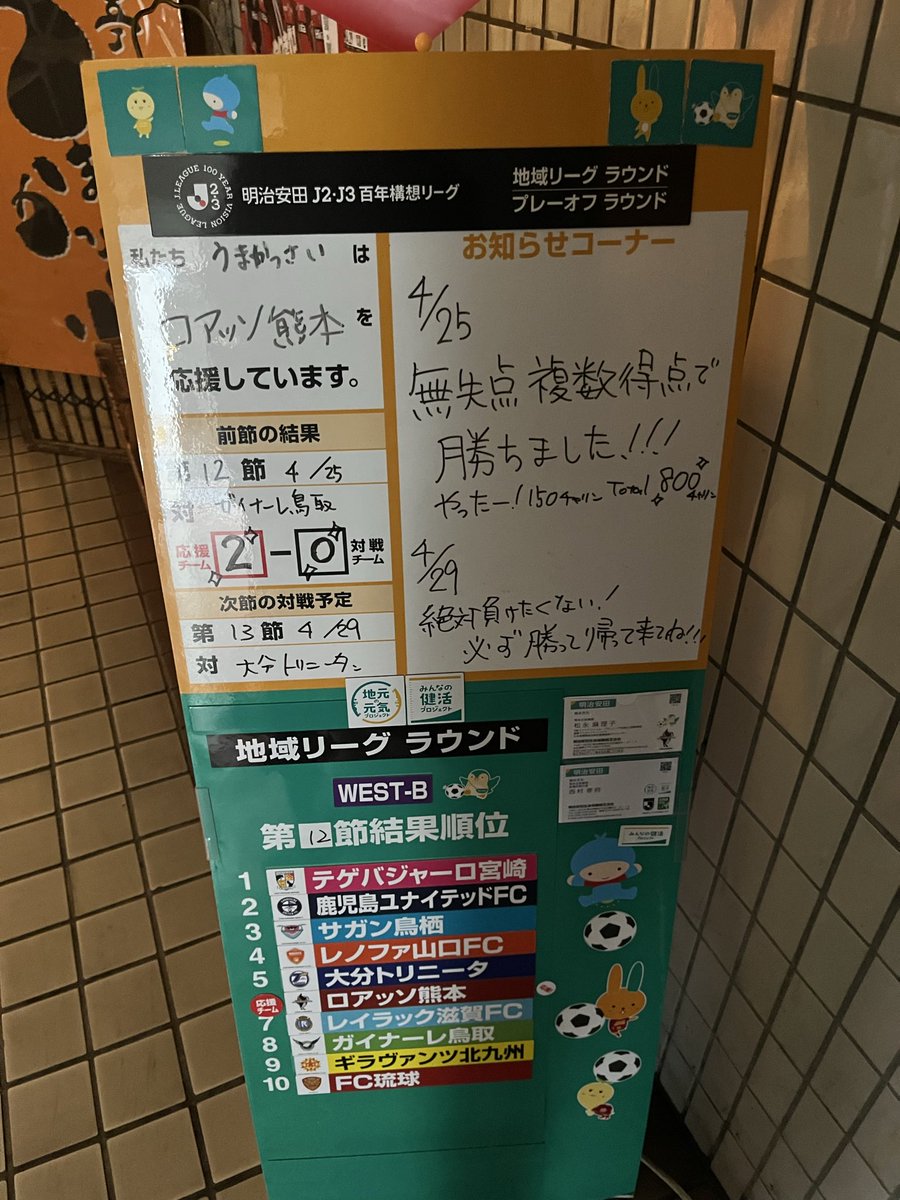 J.LEAGUE 100 YEAR VISION LEAGUE
J2・3
明治安田 J2・J3 百年構想リーグ
地域リーグ ラウンド
プレーオフ ラウンド
私たち うまかっさい は
ロアッソ熊本を
応援しています。
前節の結果
第12節 4/25
対 ガイナーレ鳥取
応援チーム 2-0 対戦チーム
次節の対戦予定
第13節 4/29
対 大分トリニータ
お知らせコーナー
4/25
無失点 複数得点で
勝ちました!!!
やったー!150チャリン Total 800チャリン
4/29
絶対負けたくない!
必ず勝って帰って来てね!!
地元の元気プロジェクト
みんなの健活プロジェクト
明治安田
明治安田
みんなの健活プロジェクト
地域リーグ ラウンド
WEST-B
第12節結果順位
1 テゲバジャーロ宮崎
2 鹿児島ユナイテッドFC
3 サガン鳥栖
4 レノファ山口FC
5 大分トリニータ
応援チーム ロアッソ熊本
7 レイラック滋賀FC
8 ガイナーレ鳥取
9 ギラヴァンツ北九州
10 FC琉球